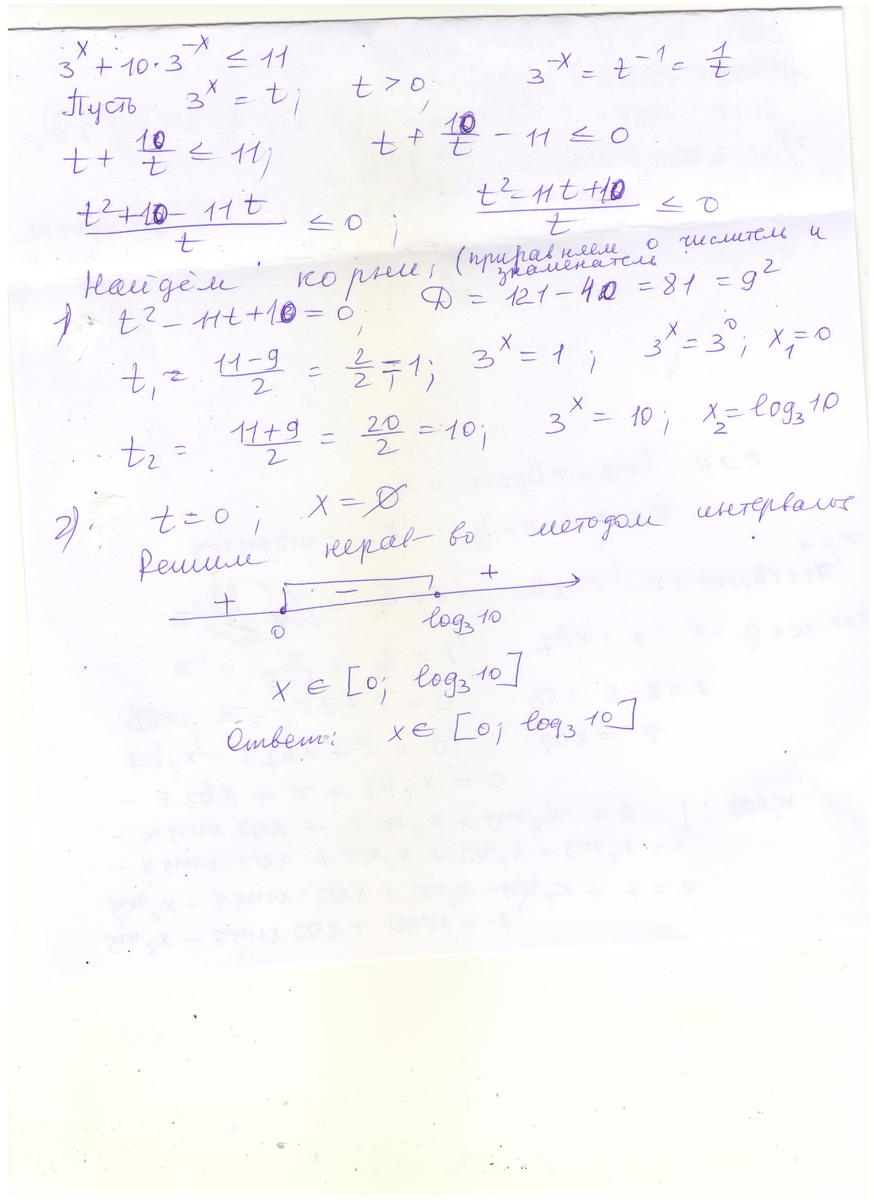 3^x + 10 · 3^-x ≤ 11
Пусть 3^x = t; t > 0; 3^-x = t^-1 = 1/t
t + 10/t ≤ 11; t + 10/t - 11 ≤ 0
(t² + 10 - 11t)/t ≤ 0; (t² - 11t + 10)/t ≤ 0
Найдём корни, (приравняем 0 числитель и
знаменатель
1) t² - 11t + 10 = 0; D = 121 - 40 = 81 = 9²
t₁ = (11-9)/2 = 2/2 = 1; 3^x = 1; 3^x = 3^0; x₁ = 0
t₂ = (11+9)/2 = 20/2 = 10; 3^x = 10; x₂ = log₃10
2) t = 0; x = ∅
Решим нерав-во методом интервалов
+ - +
0 log₃10
x ∈ [0; log₃10]
Ответ: x ∈ [0; log₃10]